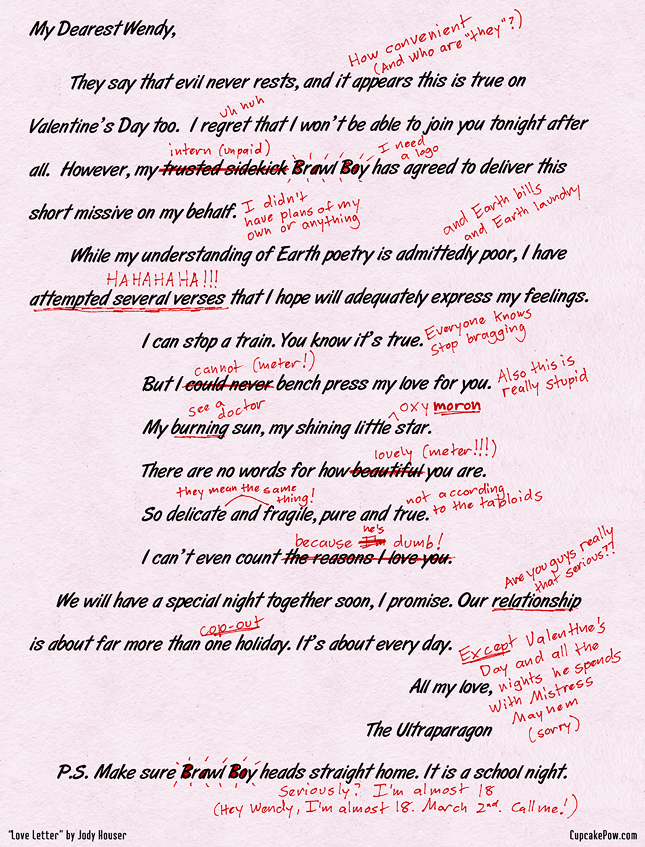 My Dearest Wendy,
How convenient
(And who are "they"?)
They say that evil never rests, and it appears this is true on
uh huh
Valentine's Day too. I regret that I won't be able to join you tonight after
intern (unpaid)
I need
a logo
all. However, my trusted sidekick Brawl Boy has agreed to deliver this
short missive on my behalf.
I didn't
have plans of my
own or anything
and Earth bills
and Earth laundry
While my understanding of Earth poetry is admittedly poor, I have
HAHAHAHA!!!
attempted several verses that I hope will adequately express my feelings.
I can stop a train. You know it's true.
Everyone knows
Stop bragging
cannot (meter!)
But I could never bench press my love for you.
Also this is
really stupid
see a
doctor
oxymoron
My burning sun, my shining little star.
lovely (meter!!!)
There are no words for how beautiful you are.
they mean the same
thing!
not according
to the tabloids
So delicate and fragile, pure and true.
he's
because I'm dumb!
I can't even count the reasons I love you.
Are you guys really
that serious??
We will have a special night together soon, I promise. Our relationship
cop-out
is about far more than one holiday. It's about every day.
Except Valentine's
Day and all the
nights he spends
with Mistress
Mayhem
(sorry)
All my love,
The Ultraparagon
P.S. Make sure Brawl Boy heads straight home. It is a school night.
Seriously? I'm almost 18
(Hey Wendy, I'm almost 18. March 2nd. Call me!)
"Love Letter" by Jody Houser
CupcakePow.com